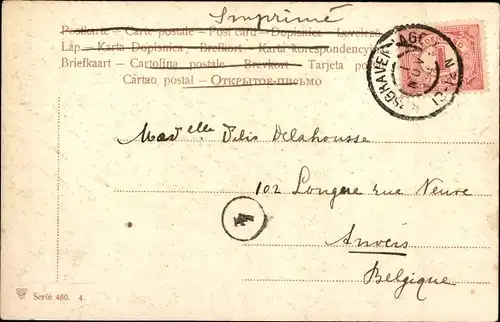 Imprimé
Postkarte – Carte postale – Post card – Dopisnice – Levelező
Láp – Karta Dopisnica, Brefkort – Karta korespondencyjna
Briefkaart – Cartolina postale – Brevkort – Tarjeta po
Cartao postal – Открытое-письмо
'SGRAVENHAGE
Mad elle Delahousse
102 Longue rue Neuve
4
Anvers
Belgique
Serie 480. 4.